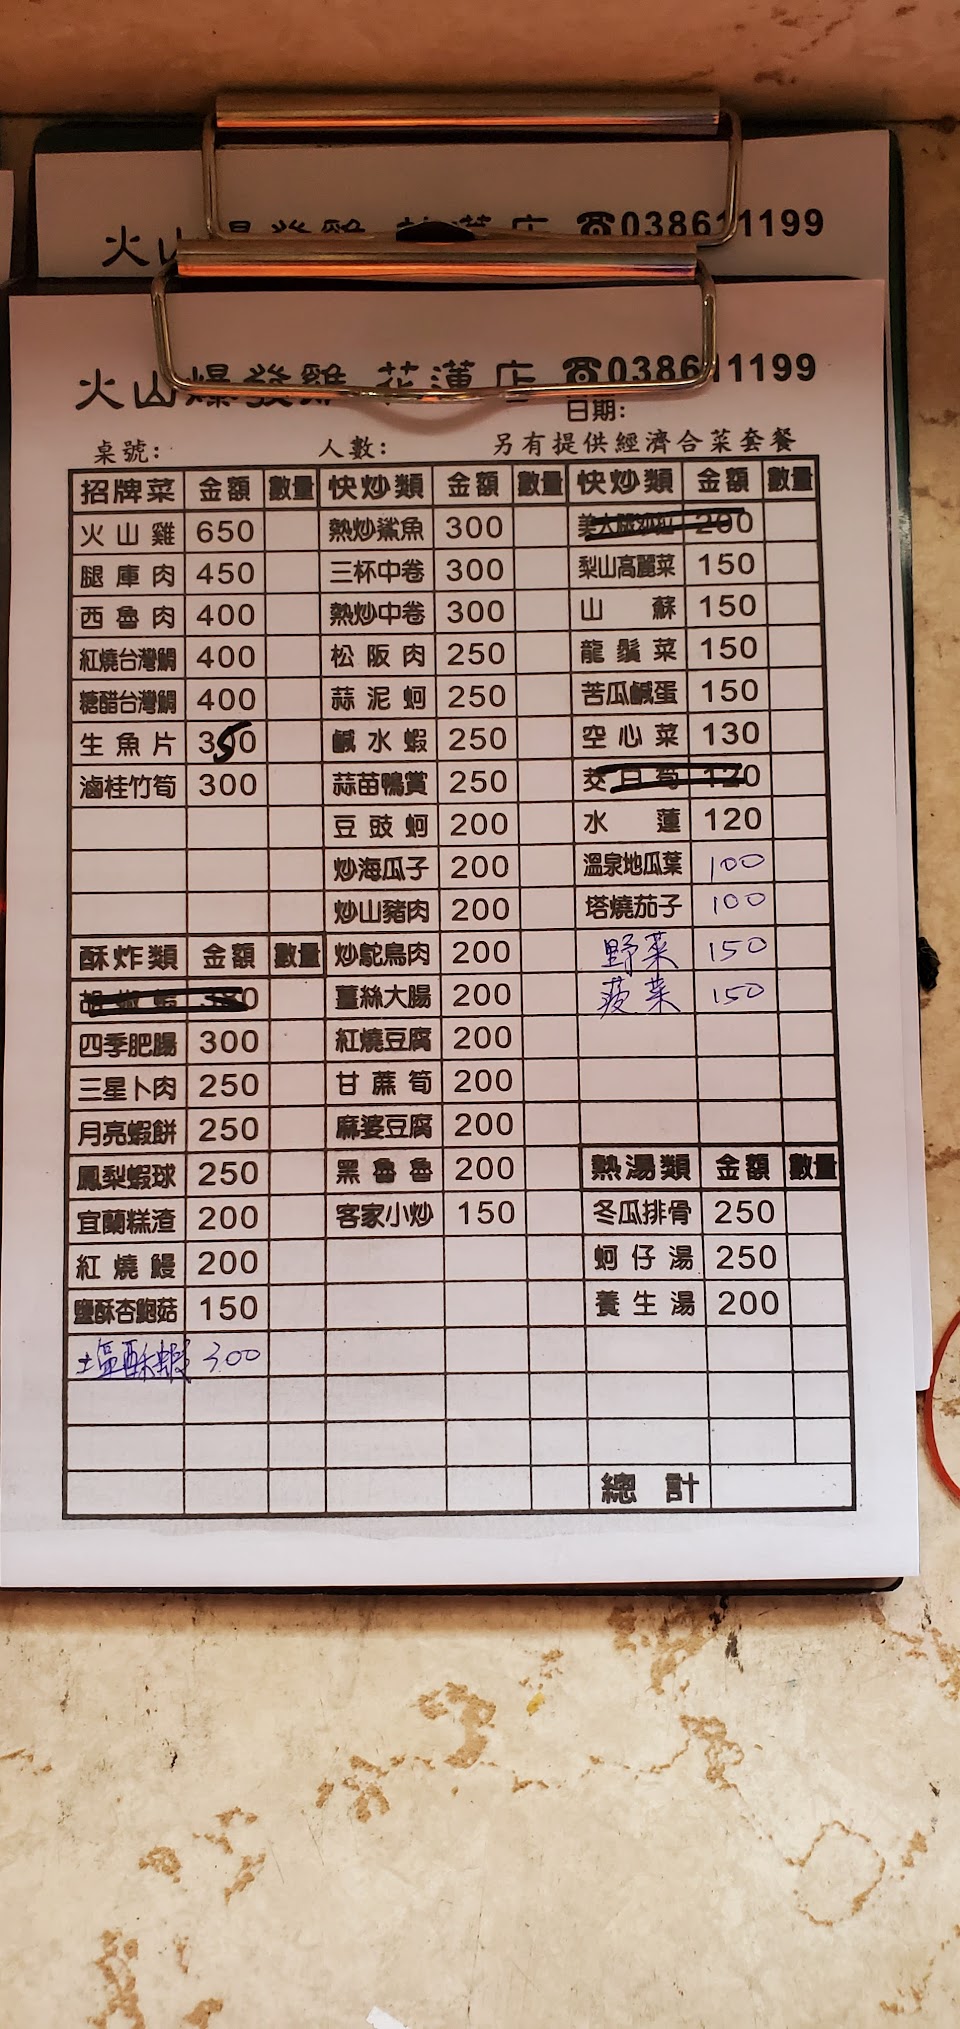 火山爆發雞 花蓮店 ☎038611199
火山爆發雞 花蓮店 ☎038611199
日期:
桌號: 人數: 另有提供經濟合菜套餐
招牌菜 金額 數量 快炒類 金額 數量 快炒類 金額 數量
火山雞 650 熱炒鯊魚 300 200
腿庫肉 450 三杯中卷 300 梨山高麗菜 150
西魯肉 400 熱炒中卷 300 山蘇 150
紅燒台灣鯛 400 松阪肉 250 龍鬚菜 150
糖醋台灣鯛 400 蒜泥蚵 250 苦瓜鹹蛋 150
生魚片 350 鹹水蝦 250 空心菜 130
滷桂竹筍 300 蒜苗鴨賞 250 茭白筍 120
豆豉蚵 200 水蓮 120
炒海瓜子 200 溫泉地瓜葉 100
炒山豬肉 200 塔燒茄子 100
酥炸類 金額 數量 炒鴕鳥肉 200 野菜 150
胡椒蝦 薑絲大腸 200 菠菜 150
四季肥腸 300 紅燒豆腐 200
三星卜肉 250 甘蔗筍 200
月亮蝦餅 250 麻婆豆腐 200
鳳梨蝦球 250 黑魯魯 200 熱湯類 金額 數量
宜蘭糕渣 200 客家小炒 150 冬瓜排骨 250
紅燒鰻 200 蚵仔湯 250
鹽酥杏鮑菇 150 養生湯 200
塩酥蝦 300
總計